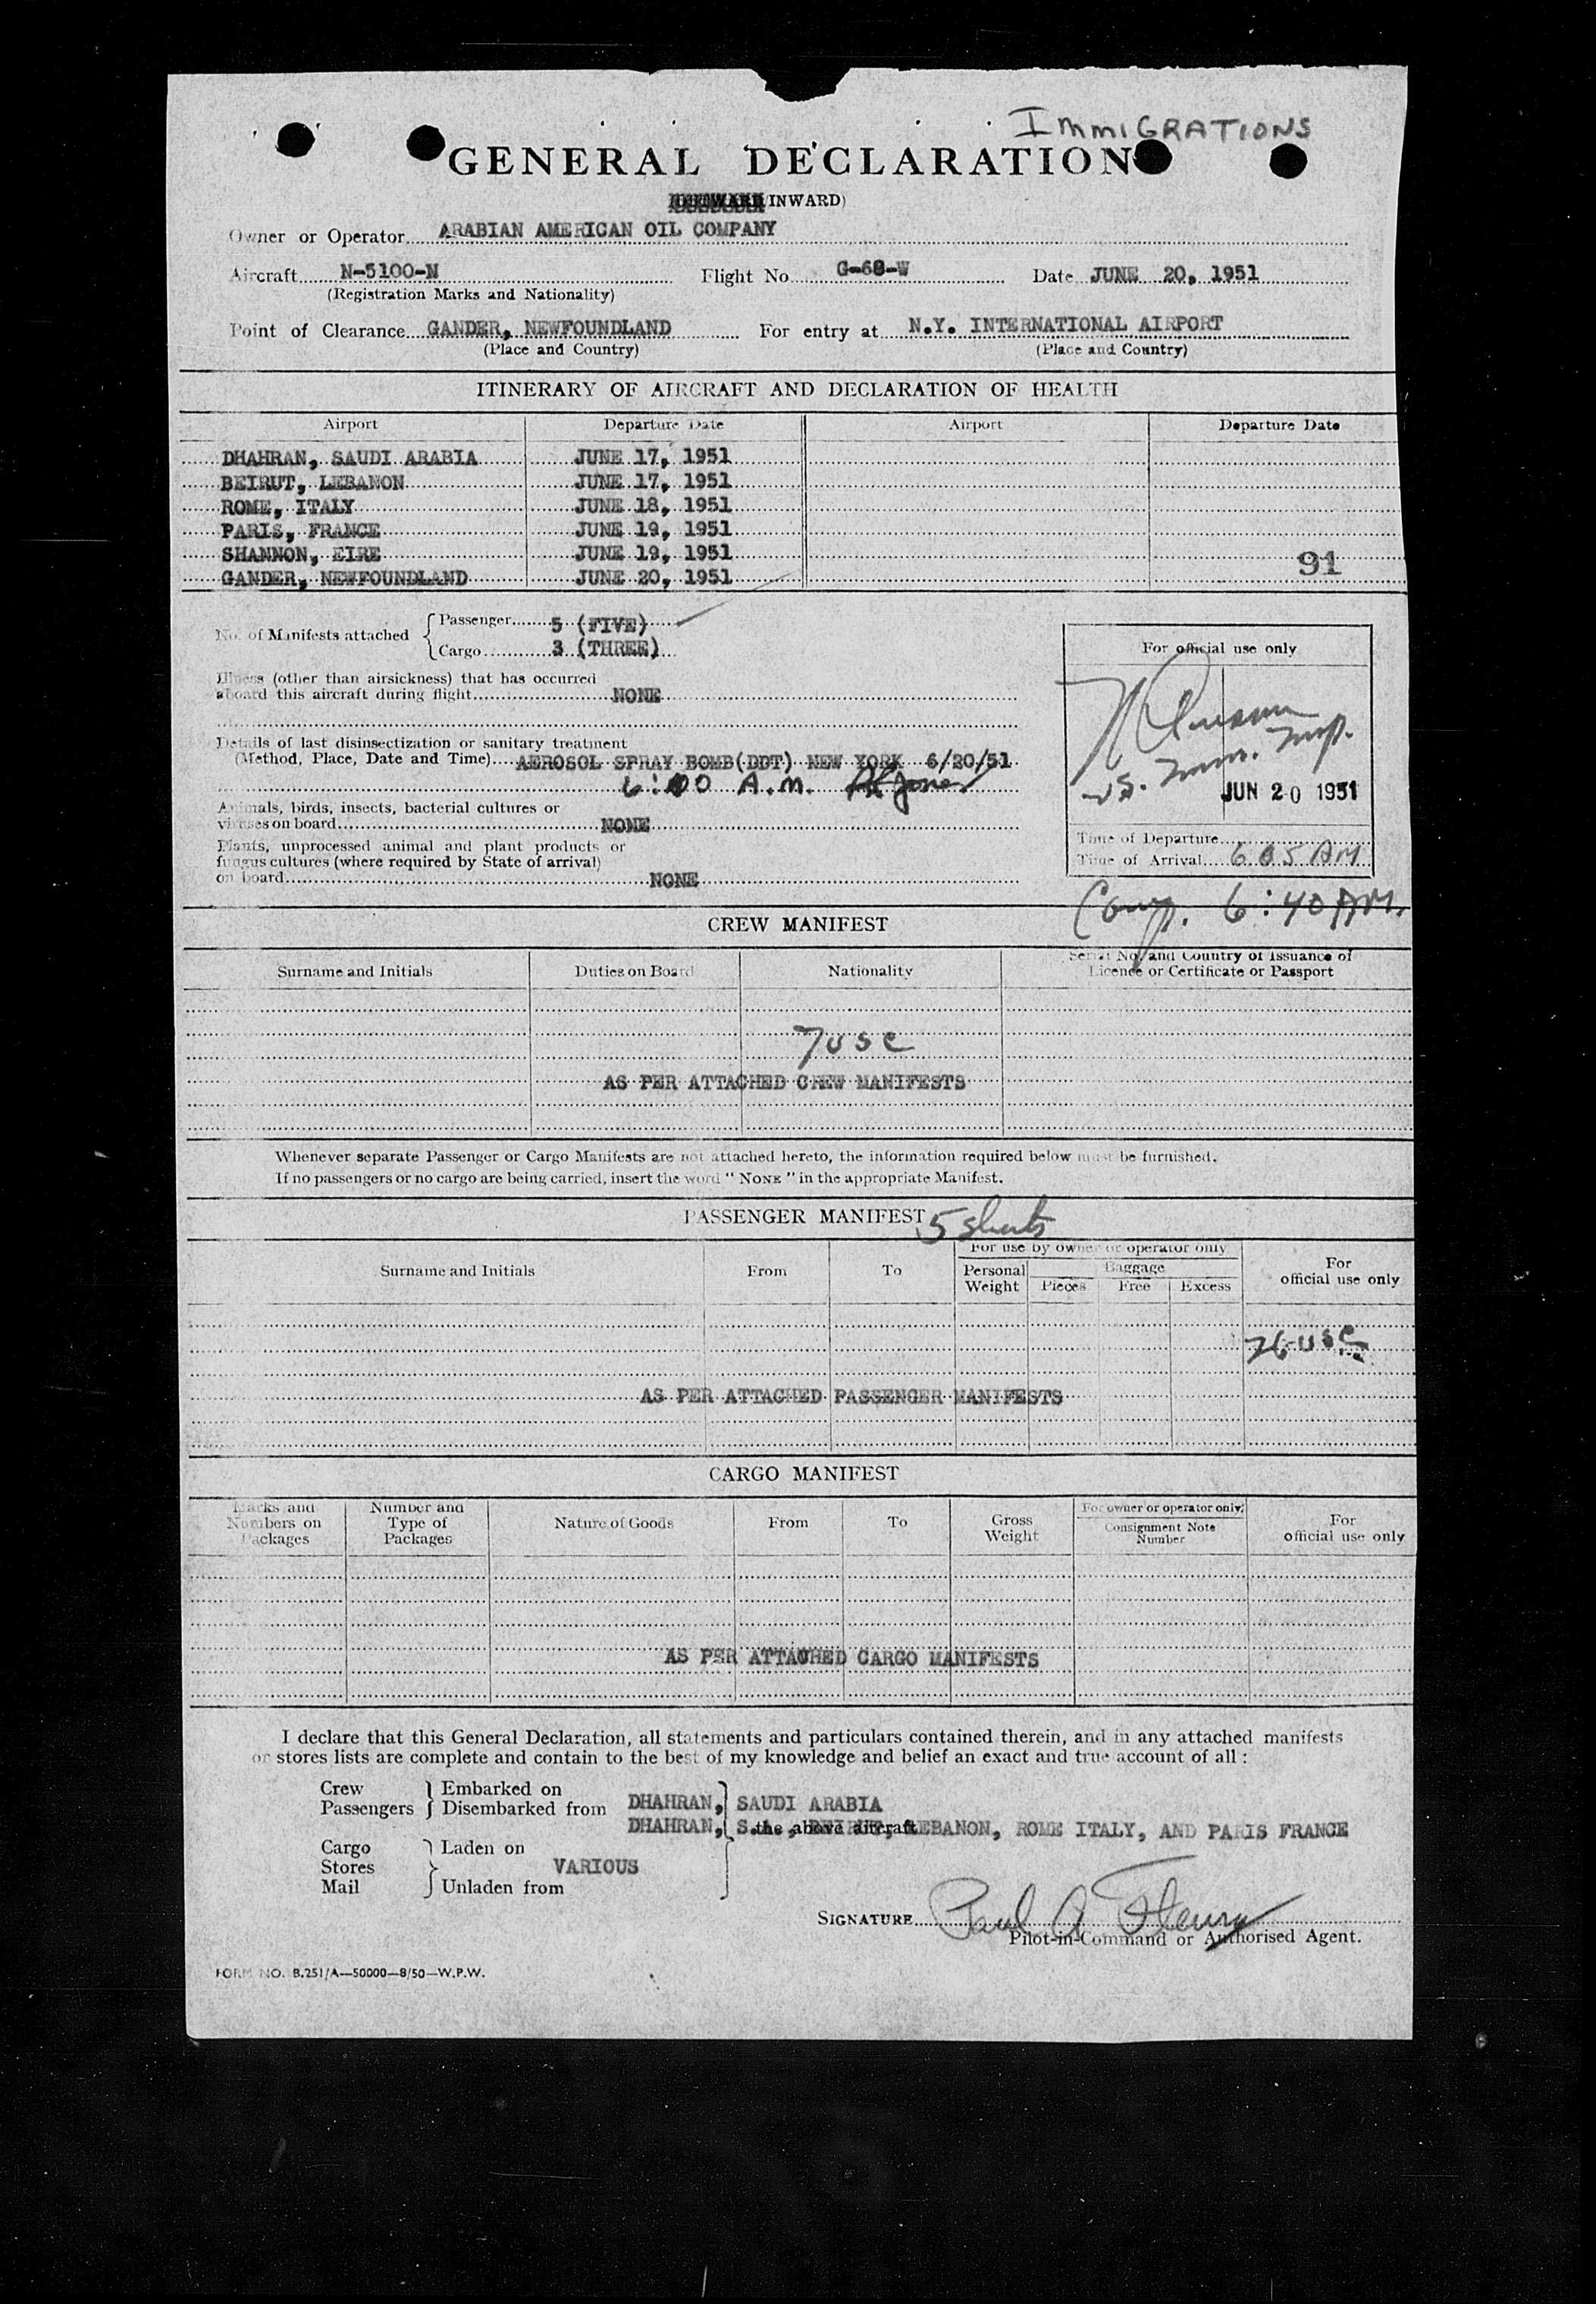 IMMIGRATIONS
GENERAL DECLARATION
INWARD)
Owner or Operator ARABIAN AMERICAN OIL COMPANY
Aircraft N-5100-N Flight No. G-68-W Date JUNE 20, 1951
(Registration Marks and Nationality)
Point of Clearance GANDER, NEWFOUNDLAND For entry at N.Y. INTERNATIONAL AIRPORT
(Place and Country) (Place and Country)
ITINERARY OF AIRCRAFT AND DECLARATION OF HEALTH
Airport Departure Date Airport Departure Date
DHAHRAN, SAUDI ARABIA JUNE 17, 1951
BEIRUT, LEBANON JUNE 17, 1951
ROME, ITALY JUNE 18, 1951
PARIS, FRANCE JUNE 19, 1951
SHANNON, EIRE JUNE 19, 1951
91
GANDER, NEWFOUNDLAND JUNE 20, 1951
No. of Manifests attached
Passenger 5 (FIVE)
Cargo 3 (THREE)
For official use only
Illness (other than airsickness) that has occurred
aboard this aircraft during flight NONE
Details of last disinsectization or sanitary treatment
(Method, Place, Date and Time) AEROSOL SPRAY BOMB(DDT) NEW YORK 6/20/51
6:00 A.M. Jones
U.S. Imm. Insp.
JUN 20 1951
Animals, birds, insects, bacterial cultures or
viruses on board NONE
Plants, unprocessed animal and plant products or
fungus cultures (where required by State of arrival)
on board NONE
Time of Departure
Time of Arrival 6 05 AM
Comp. 6:40 AM.
CREW MANIFEST
Surname and Initials Duties on Board Nationality Serial No. and Country of Issuance of
Licence or Certificate or Passport
7 USC
AS PER ATTACHED CREW MANIFESTS
Whenever separate Passenger or Cargo Manifests are not attached hereto, the information required below must be furnished.
If no passengers or no cargo are being carried, insert the word " NONE " in the appropriate Manifest.
PASSENGER MANIFEST 5 sheets
For use by owner or operator only
Surname and Initials From To Personal Weight Baggage Pieces Free Excess For official use only
26 USC
AS PER ATTACHED PASSENGER MANIFESTS
CARGO MANIFEST
Marks and Numbers on Packages Number and Type of Packages Nature of Goods From To Gross Weight For owner or operator only: Consignment Note Number For official use only
AS PER ATTACHED CARGO MANIFESTS
I declare that this General Declaration, all statements and particulars contained therein, and in any attached manifests
or stores lists are complete and contain to the best of my knowledge and belief an exact and true account of all :
Crew Embarked on
Passengers Disembarked from DHAHRAN, SAUDI ARABIA
DHAHRAN, S.A., BEIRUT, LEBANON, ROME ITALY, AND PARIS FRANCE
the above aircraft
Cargo Laden on
Stores VARIOUS
Mail Unladen from
SIGNATURE Paul A
Pilot-in-Command or Authorised Agent.
FORM NO. B.251/A—50000—8/50—W.P.W.